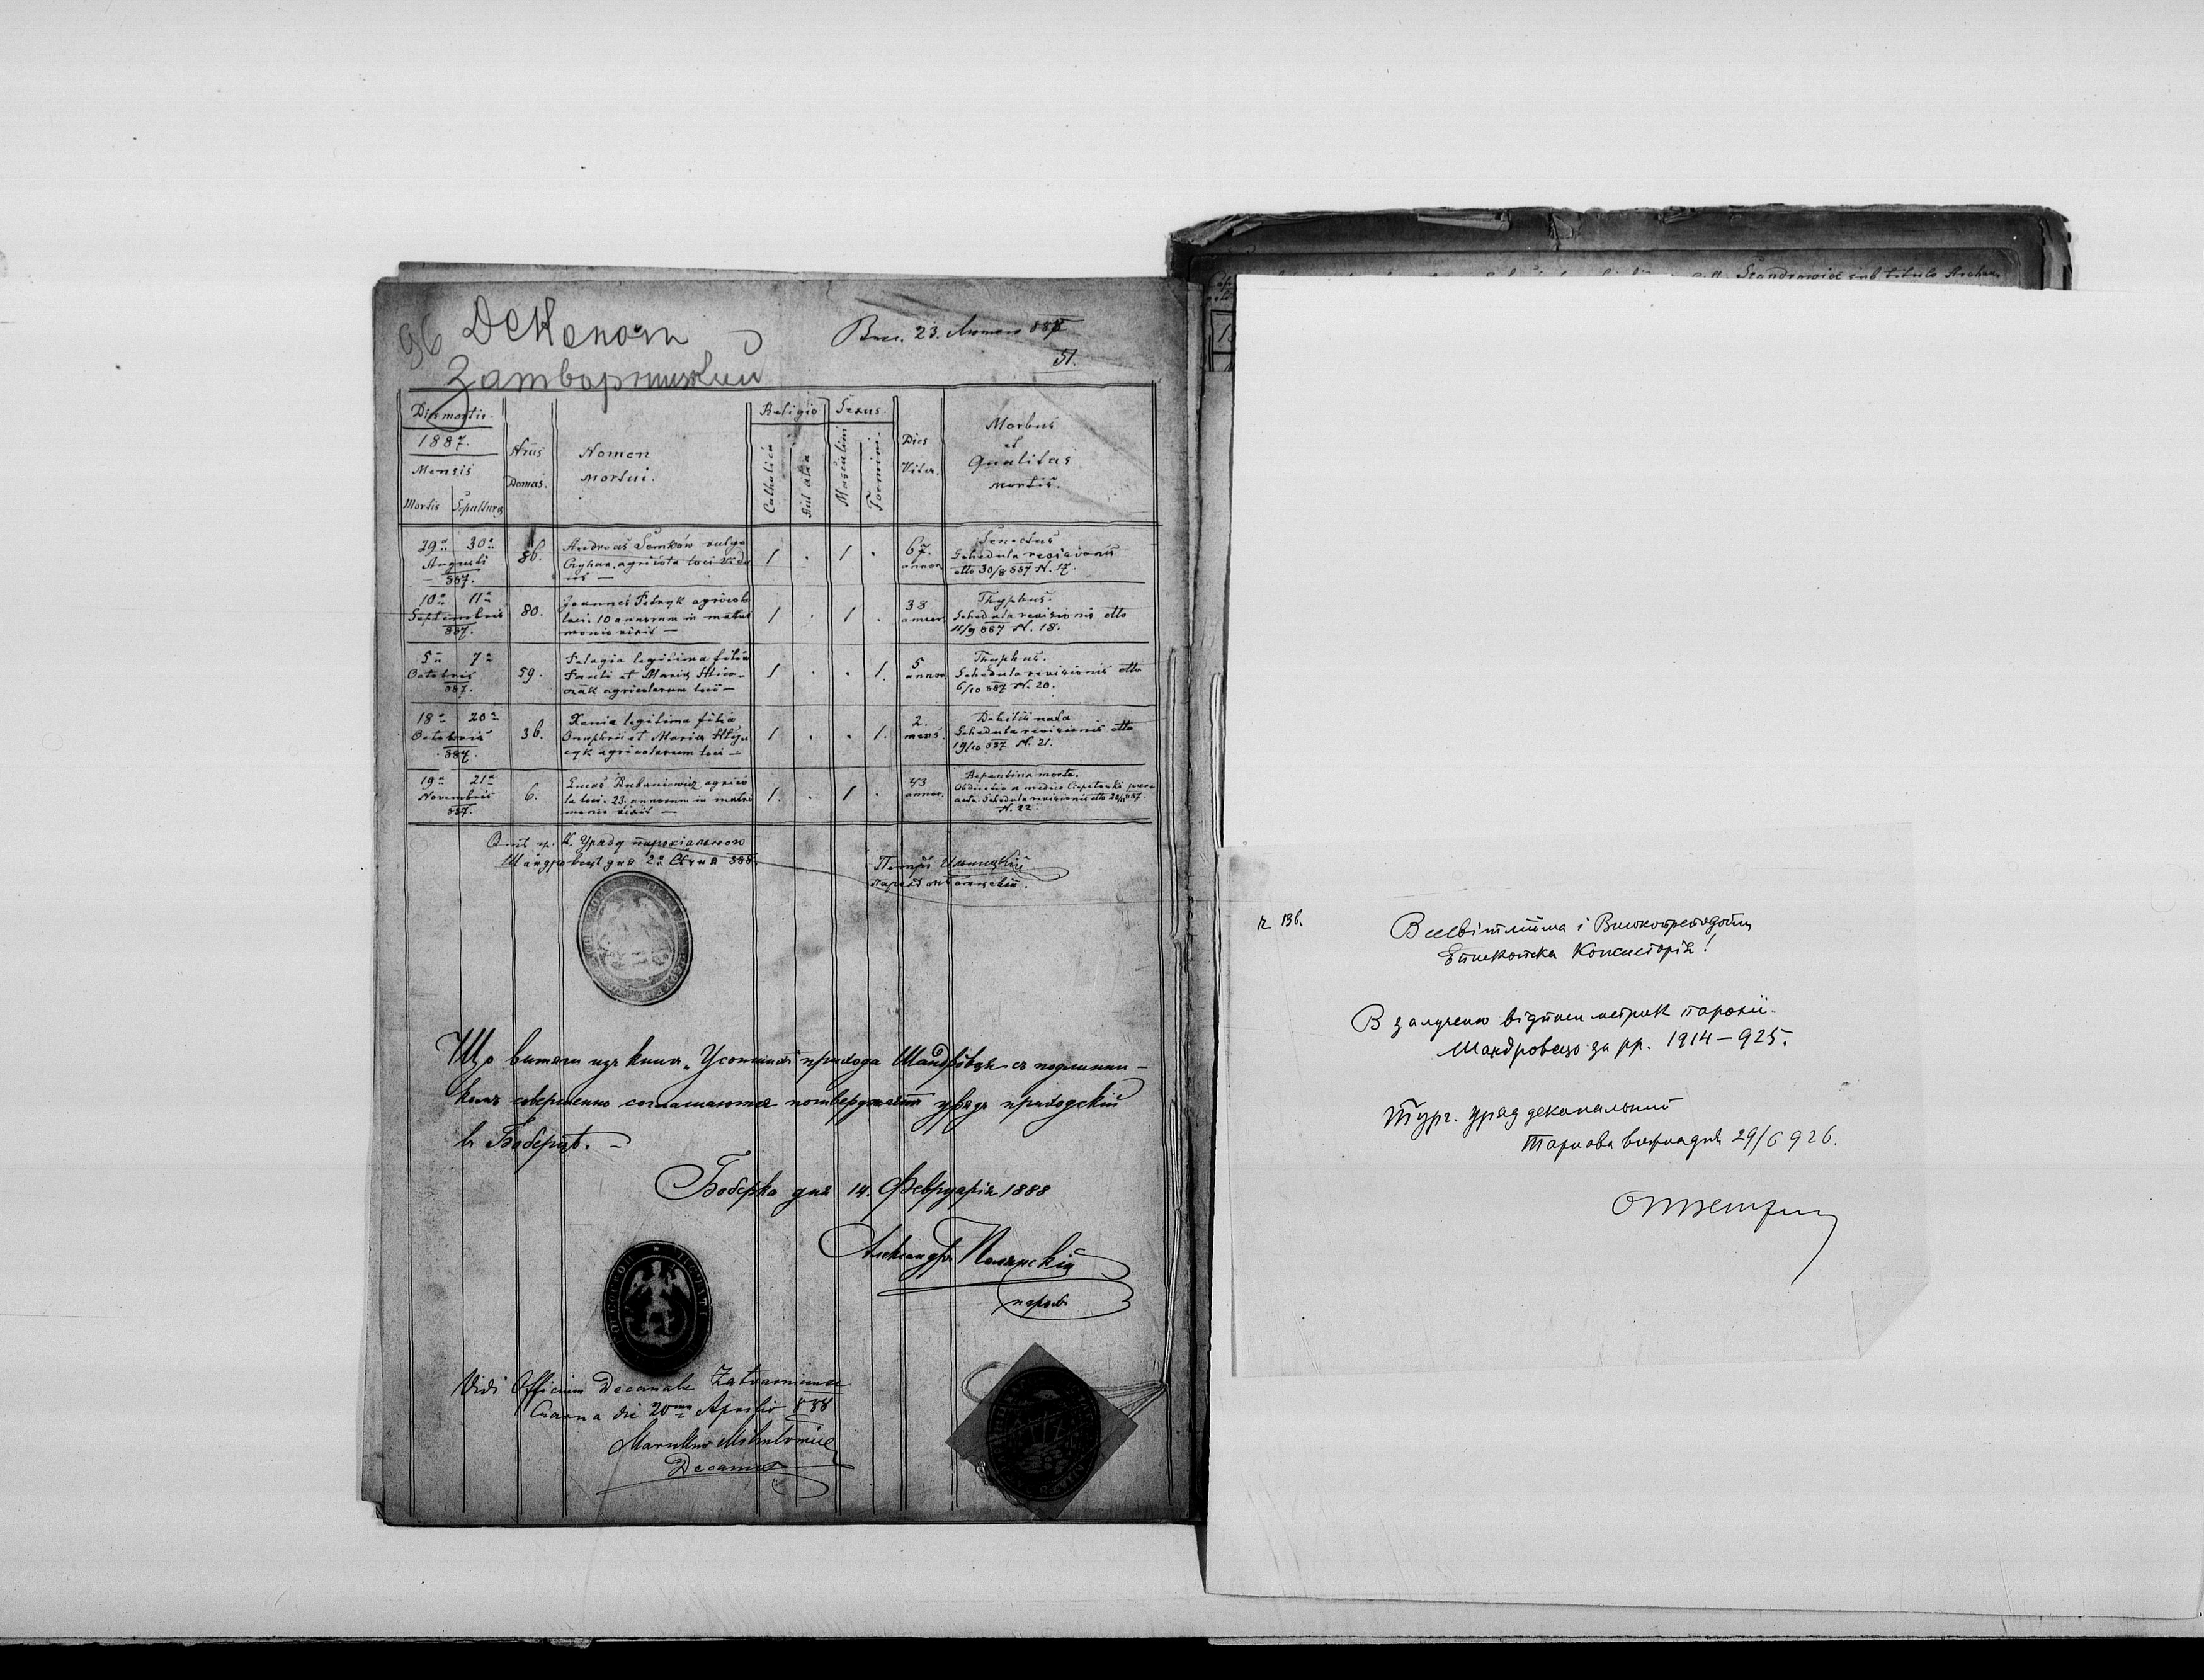 96 Деканат
Затварницкий
Внес. 23. Лютого 888
51.
Dies mortis.
1887.
Mensis
Mortis Sepulturae
Nrus
Domus.
Nomen
mortui.
Religio
Catholica
Aut alia
Sexus.
Masculini
Foeminini.
Dies
Vitae.
Morbus
et
Qualitas
mortis.
29a 30a
Augusti
887.
86.
Andreas Semków vulgo
agricola loci Vidu
us —
1 . 1 .
67.
annor.
Senectus
Schedula revisionis
dtto 30/8 887 N. 17.
10a 11a
Septembris
887.
80.
Joannes Petryk agricola
loci. 10 annorum in matri
monio vixit —
1 . 1 .
38
annor.
Thyphus.
Schedula revisionis dtto
11/9 887 N. 18.
5a 7a
Octobris
887.
59.
Pelagia legitima filia
Pauli et Maria
agricolarum loci —
1 . . 1.
5
annor.
Thyphus.
Schedula revisionis dtto
6/10 887 N. 20.
18a 20a
Octobris
887.
36.
Xenia legitima filia
Onuphrii et Maria
agricolarum loci —
1 . . 1.
2.
mens.
Debilis nata
Schedula revisionis dtto
19/10 887 N. 21.
19a 21a
Novembris
887.
6.
Lucas agrico
la loci. 23. annorum in matri
monio vixit —
1. . 1 .
43
annor.
Repentina morte.
Obductio a medico
acta. Schedula revisionis dtto 887.
N. 22.
Отъ гр. к. Уряду парохіяльного
Шандровець дня 2а 888.
Петръ Ильницкій
Що вытяги изъ книги „Усопшихъ" прихода Шандрôвця съ подлинни-
комъ совершенно соглашаются потверджаетъ урядъ приходскій
въ Боберцѣ. —
Боберка дня 14. Февруарія 1888
Александръ Полянскій
парохъ
Vidi Officium Decanale Zatvarnicense
Czarna die 20ma Aprilis 888
Decanus
ч. 136.
Всесвітлійша і Високопреподобна
Епископска Консисторія!
В залученю відписи метрик парохії
Шандровець за рр. 1914–925.
Турч. уряд деканальний
Тарнава вижна дня 29/6 926.